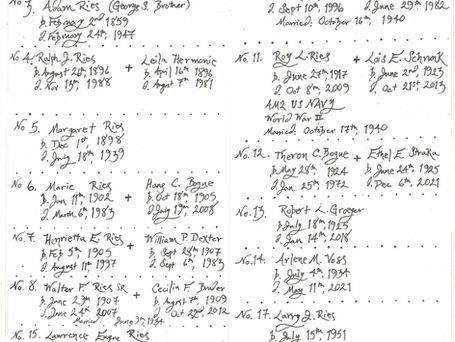 No. 3. Adam Ries (George S. Brother)
b. February 2nd 1859
d. February 24th, 1947
No. 4. Ralph J. Ries + Leila Hermonie
b. August 26th, 1896 b. April 16th 1896
d. Nov 13th, 1988 d. Aug 7th 1981
No. 5. Margaret Ries
b. Dec 1st, 1898
d. July 18th 1939
No. 6. Marie Ries + Hans C. Bogue
b. Jan 11th, 1902 b. Oct 18th, 1905
d. March 6th, 1983 d. July 19th, 2008
No. 7. Henrietta E. Ries + William P. Dexter
b. Feb 5th, 1905 b. Sept 28th 1907
d. August 11th 1997 d. Sept 6th, 1983
No. 8. Walter F. Ries SR + Cecilia F.
b. June 23rd 1907 b. August 7th, 1909
d. June 24th 2007 d. Oct 22nd, 2012
Married: June 9th, 1934
No. 15. Lawrence Eugne Ries
d. Sept 10th, 1996 d. June 29th 1982
Married: October 16th, 1940
No. 11. Roy L. Ries + Lois E. Schronk
b. June 27th 1917 b. June 2nd, 1923
d. Oct 8th, 2009 d. Oct 21st, 2013
AM2 US NAVY
World War II
Married: October 17th, 1940
No. 12. Theron C. Bogue + Ethel E. Straka
b. May 28th, 1924 b. June 24th, 1925
d. Jan 25th, 1972 d. Dec 6th, 2021
No. 13. Robert L. Groeger
b. July 18th, 1925
d. Jan 14th, 2018
No. 14. Arlene M. Voss
b. July 4th, 1934
d. May 11th, 2021
No. 17. Larry J. Ries
b. July 15th, 1951